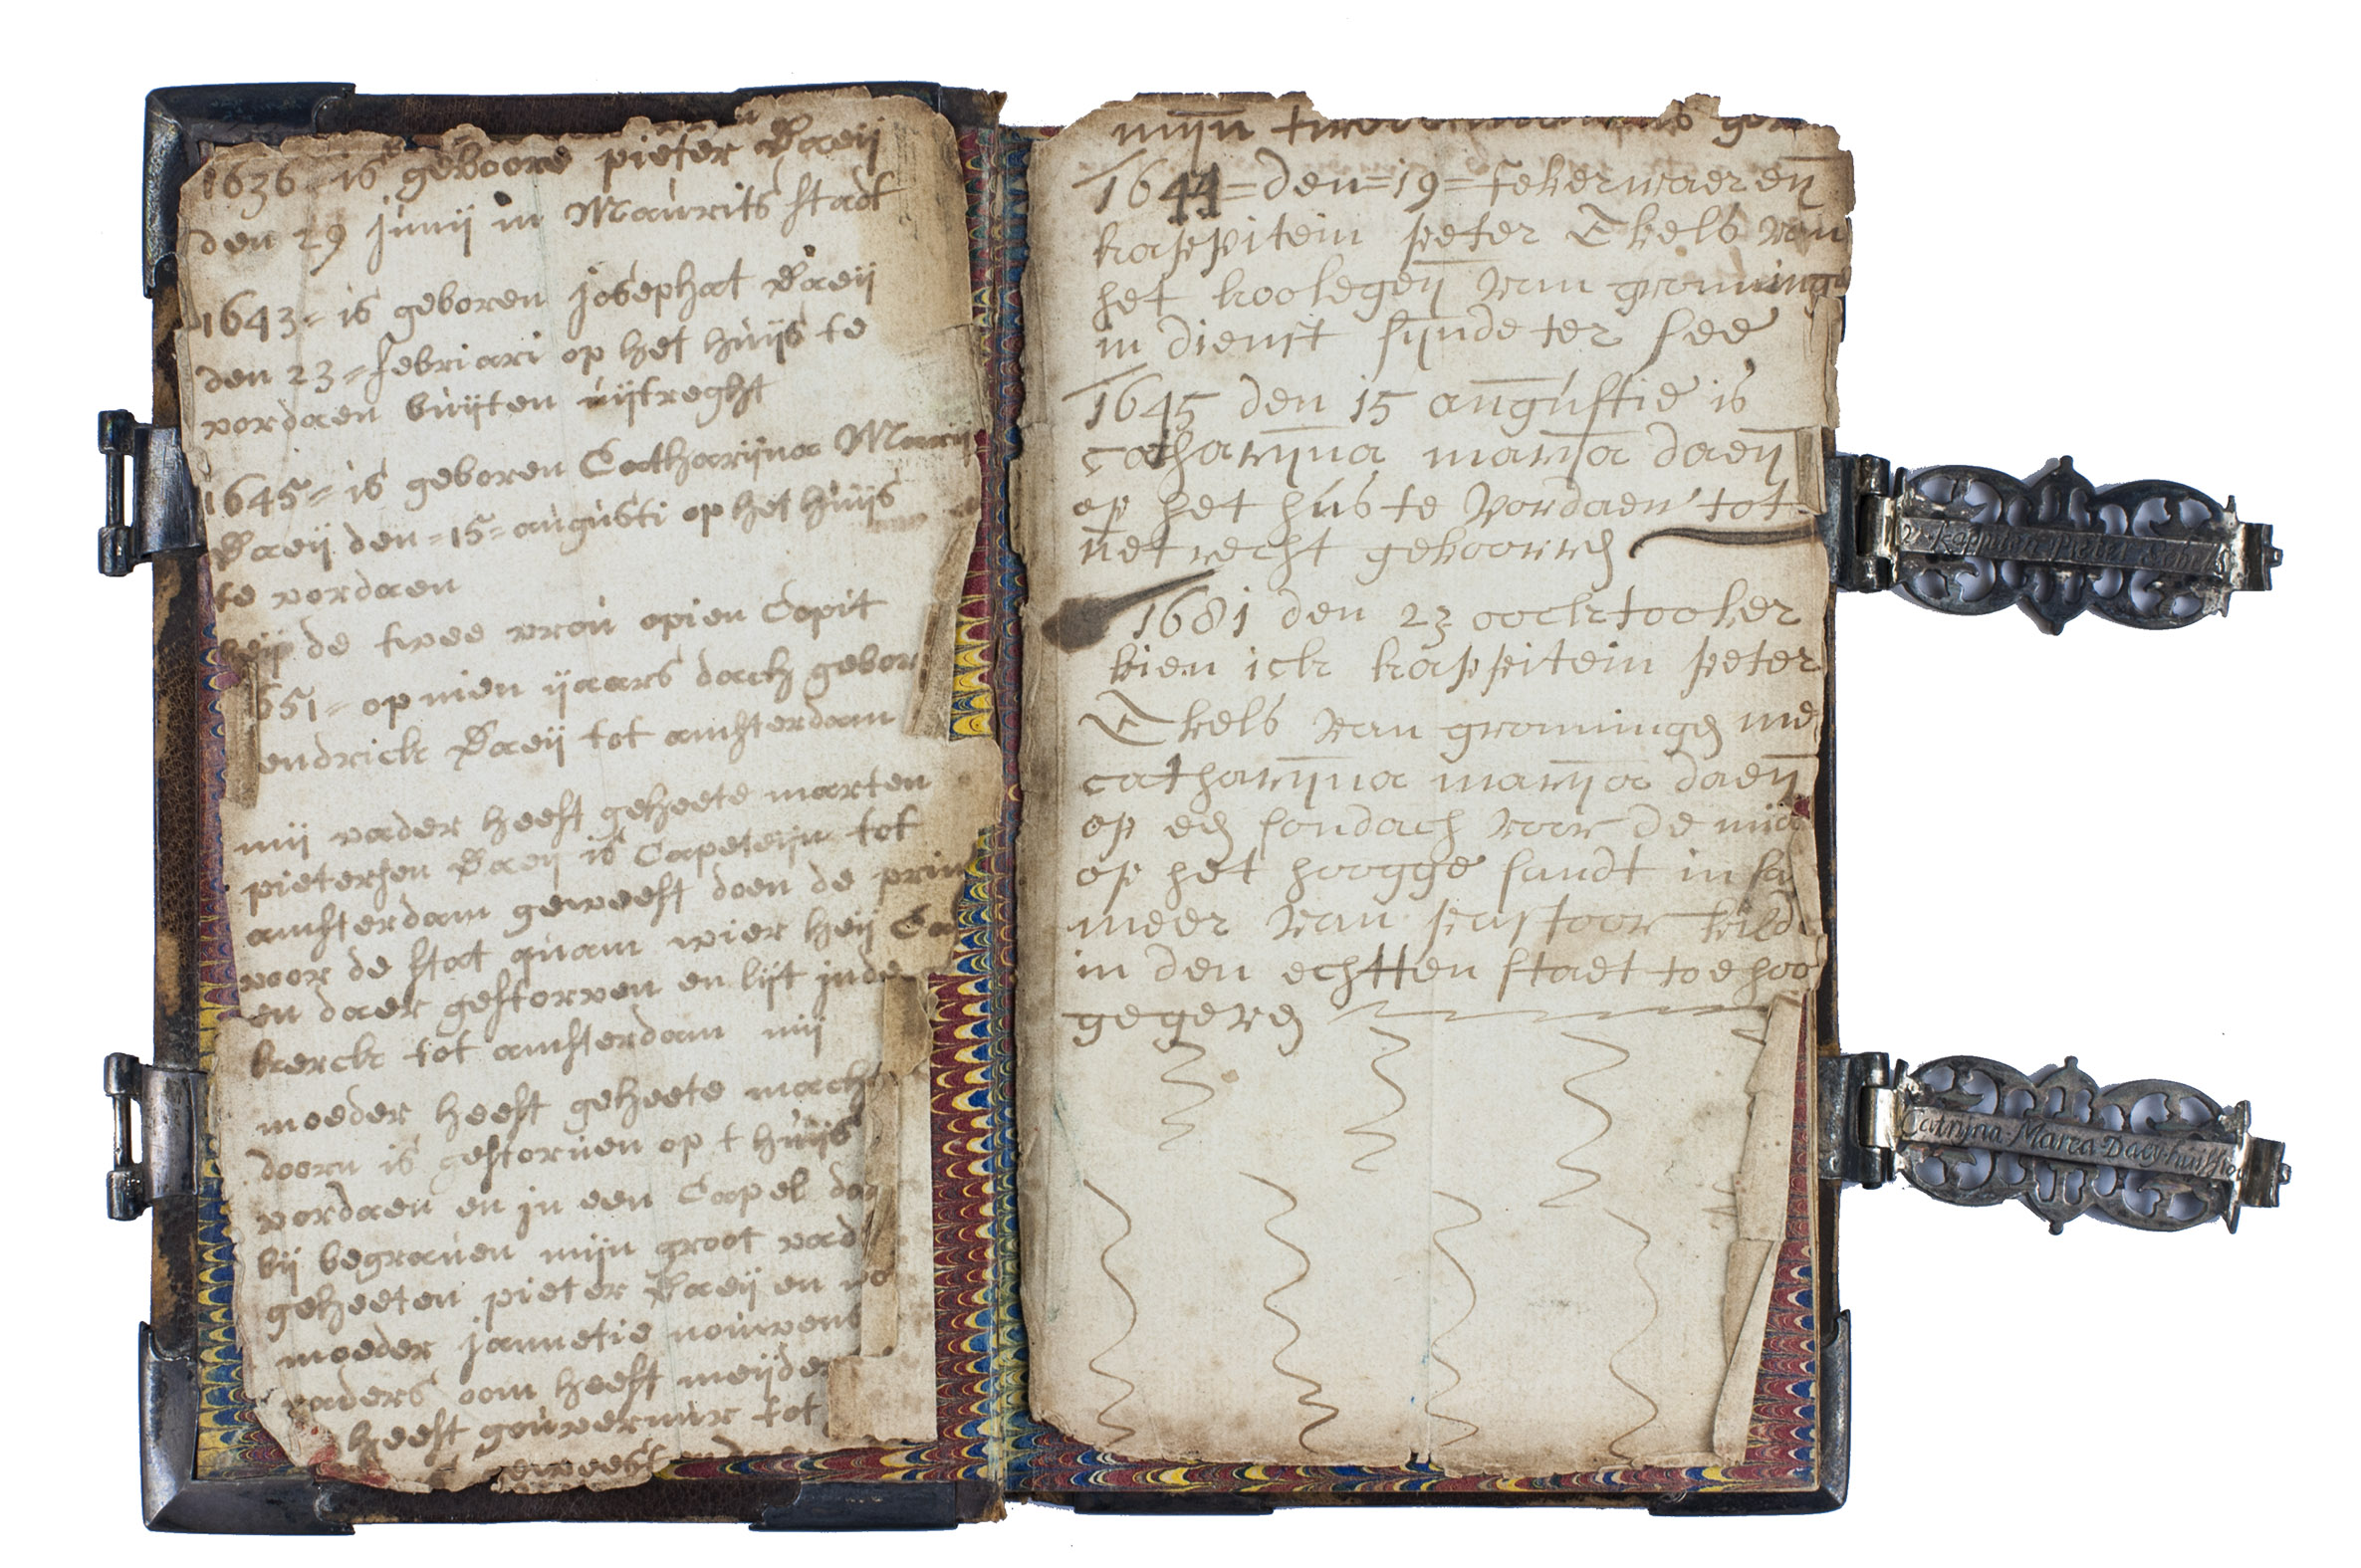 1636 is geboore pieter Daeij
den 29 junij in Maurits stadt
1643 = is geboren josephat Daeij
den 23 = febriari op het huijs te
vordaen buijten uijtreght
1645 = is geboren Catharijna Marij
Daeij den = 15 = augusti op het huijs
te vordaen
de twee vrou opien Capit
651 = op nien ijaars dach gebor
endrick Daeij tot amsterdam
mij vader heeft geheete marten
pietersen Daeij is Capeteijn tot
amsterdam geweest doen de prin
voor de stat quam wier heij
en daer gestorven en lijt inde
kerck tot amsterdam mij
moeder heeft geheete macht
doorn is gestorven op t huijs
vordaen en jn een Capel
bij begraven mijn groot vad
geheeten pieter Daeij en vo
moeder jannetie nouwens
vaders oom heeft meijde
heeft gouvernuir tot
geweest
mijn
1644 = den = 19 = feberwaer en
kappitein peter Ekels van
het koolegeij van gronninge
in dienst sijnde ter see
1645 den 15 augustie is
catharijna marija daeij
op het hus te vordaen tot
uetrecht geboorren
1681 den 23 oocktoober
bien ick kappitein peter
Ekels van groningen me
catharijna marija daeij
op een sondach voor de mid
op het hoogge sandt in sa
meer van pastoor
in den echtten staet toe hoo
gegeven
Kappitein Pieter Eckels
Catrijna Marea Daey huisfro